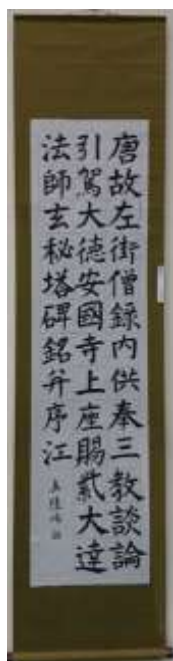 唐故左街僧錄內供奉三教談論
引駕大德安國寺上座賜紫大達
法師玄秘塔碑銘并序江